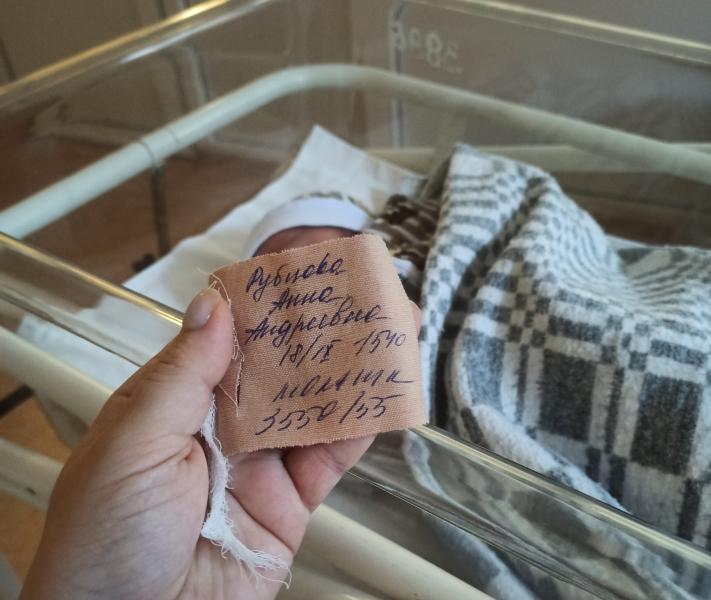 3898
Рубцова
Анна
Андреевна
18/IX 1540
мальчик
3550/55